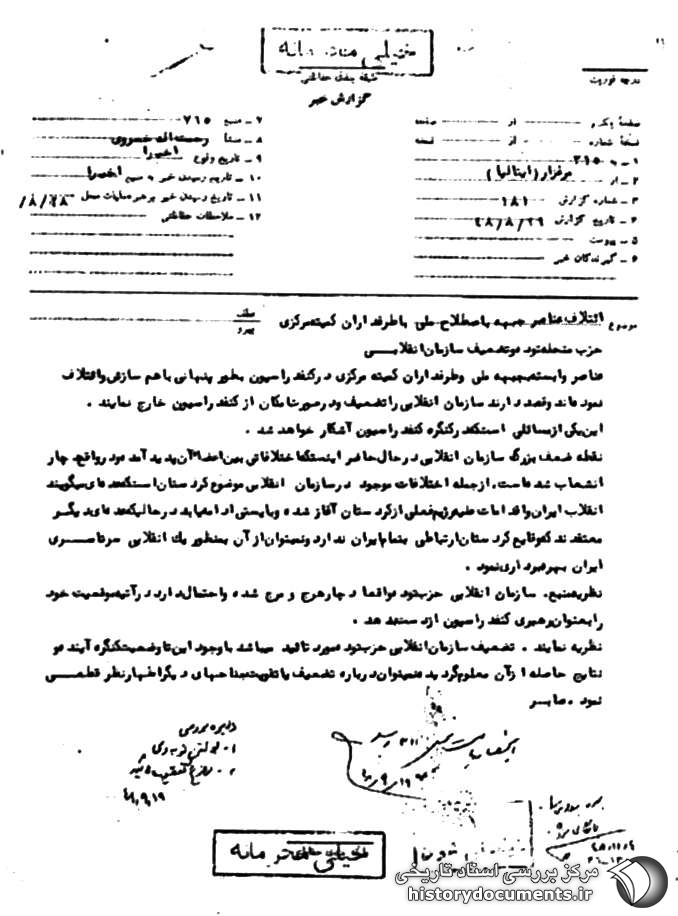 خیلی محرمانه
طبقه بندی حفاظتی
گزارش خبر
درجه فوریت
صفحه یکم از صفحه
نسخه شماره از نسخه
۱ ـ به ۳۱۵
۲ ـ از مرغزار (ایتالیا)
۳ ـ شماره گزارش ۱۸۱
۴ ـ تاریخ گزارش ۴۸/۸/۲۹
۵ ـ پیوست
۶ ـ گیرندگان خبر
۷ ـ منبع ۷۶۵
۸ ـ منشا رحمت‌اله خسروی
۹ ـ تاریخ وقوع اخیرا
۱۰ ـ تاریخ رسیدن خبر به منبع اخیرا
۱۱ ـ تاریخ رسیدن خبر به رهبر عملیات محل ۲۸/۸/
۱۲ ـ ملاحظات حفاظتی
موضوع ائتلاف عناصر جبهه باصطلاح ملی باطرفداران کمیته مرکزی
عطف
پیرو
حزب منحله توده و تضعیف سازمان انقلابی
عناصر وابسته جبهه ملی وطرفداران کمیته مرکزی درکنفدراسیون بطور پنهانی باهم سازش وائتلاف
نموده‌اند وقصد دارند سازمان انقلابی راتضعیف ودرصورت امکان از کنفدراسیون خارج نمایند .
این یکی ازمسائلی است که درکنگره کنفدراسیون آشکار خواهد شد .
نقطه ضعف بزرگ سازمان انقلابی درحال حاضر اینست که اختلافاتی بین اعضا آن پدید آمده و درواقع دچار
انشعاب شده است، ازجمله اختلافات موجود درسازمان انقلابی موضوع کردستان است که عده‌ای میگویند
انقلاب ایران واقدامات علیه رژیم فعلی ازکردستان آغاز شده وبایستی ادامه یابد درحالیکه عده‌ای دیگر
معتقدند که وقایع کردستان ارتباطی بتمام ایران ندارد ونمیتوان از آن بمنظور یک انقلابی سرتاسری
ایران بهره‌برداری نمود .
نظریه منبع. سازمان انقلابی حزب توده واقعا دچار هرج و مرج شده واحتمال دارد درآتیه موقعیت خود
رابعنوان رهبری کنفدراسیون ازدست بدهد .
نظریه نماینده . تضعیف سازمان انقلابی حزب توده مورد تائید میباشد باوجود این تا وضعیت کنگره آینده و
نتایج حاصله ازآن معلوم نگردیده نمیتوان درباره تضعیف یاتقویت جناحهای دیگر اظهارنظر قطعی
نمود . صابر
دایره بررسی
۴۸،۹،۱۹
۴۸/۹/۱۹
خیلی محرمانه
مرکز بررسی اسناد تاریخی
historydocuments.ir